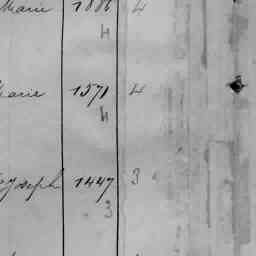 Marie 1886 4
4
Marie 1571 4
4
Joseph 1447 3
3